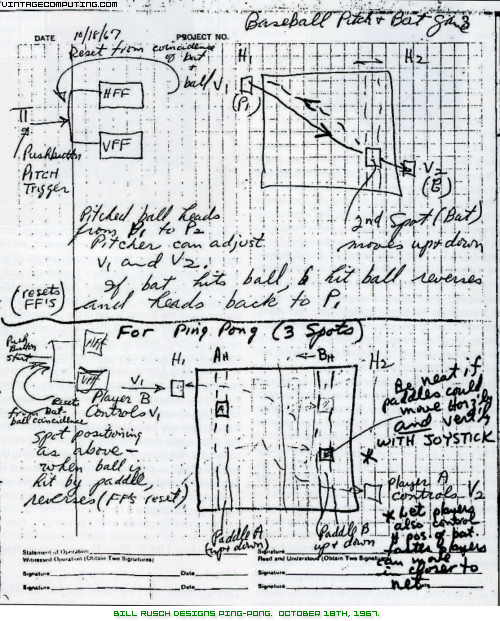 VINTAGECOMPUTING.COM
Baseball Pitch & Bat Game
DATE 10/18/67 PROJECT NO. 3
Reset from coincidence
of bat
+
ball
H1
H2
V1
(P1)
HFF
VFF
V2
(B)
Pushbutton
PITCH
Trigger
2nd Spot (Bat)
moves up + down
Pitched ball heads
from P1 to P2
Pitcher can adjust
V1 and V2.
If bat hits ball, hit ball reverses
and heads back to P1
(resets
FF'S)
For Ping Pong (3 Spots)
Push
Button
Start
HFF
VFF
Reset
from Bat-
ball coincidence
V1
Player B
Controls V1
H1
AH
BH
H2
A
B
Be neat if
paddles could
move Horz'ly
and vert'ly
WITH JOYSTICK
*
Spot positioning
as above—
when ball is
hit by paddle,
reverses (FF's reset)
Player A
controls V2
* Let players
also control
H pos. of bat.
faster players
can move
in closer to
net.
Paddle A
(up + down)
Paddle B
up + down
Statement of Operation
Witnessed Operation (Obtain Two Signatures)
Read and Understood (Obtain Two Signatures)
Signature Date Signature
Signature Date Signature
BILL RUSCH DESIGNS PING-PONG. OCTOBER 18TH, 1967.